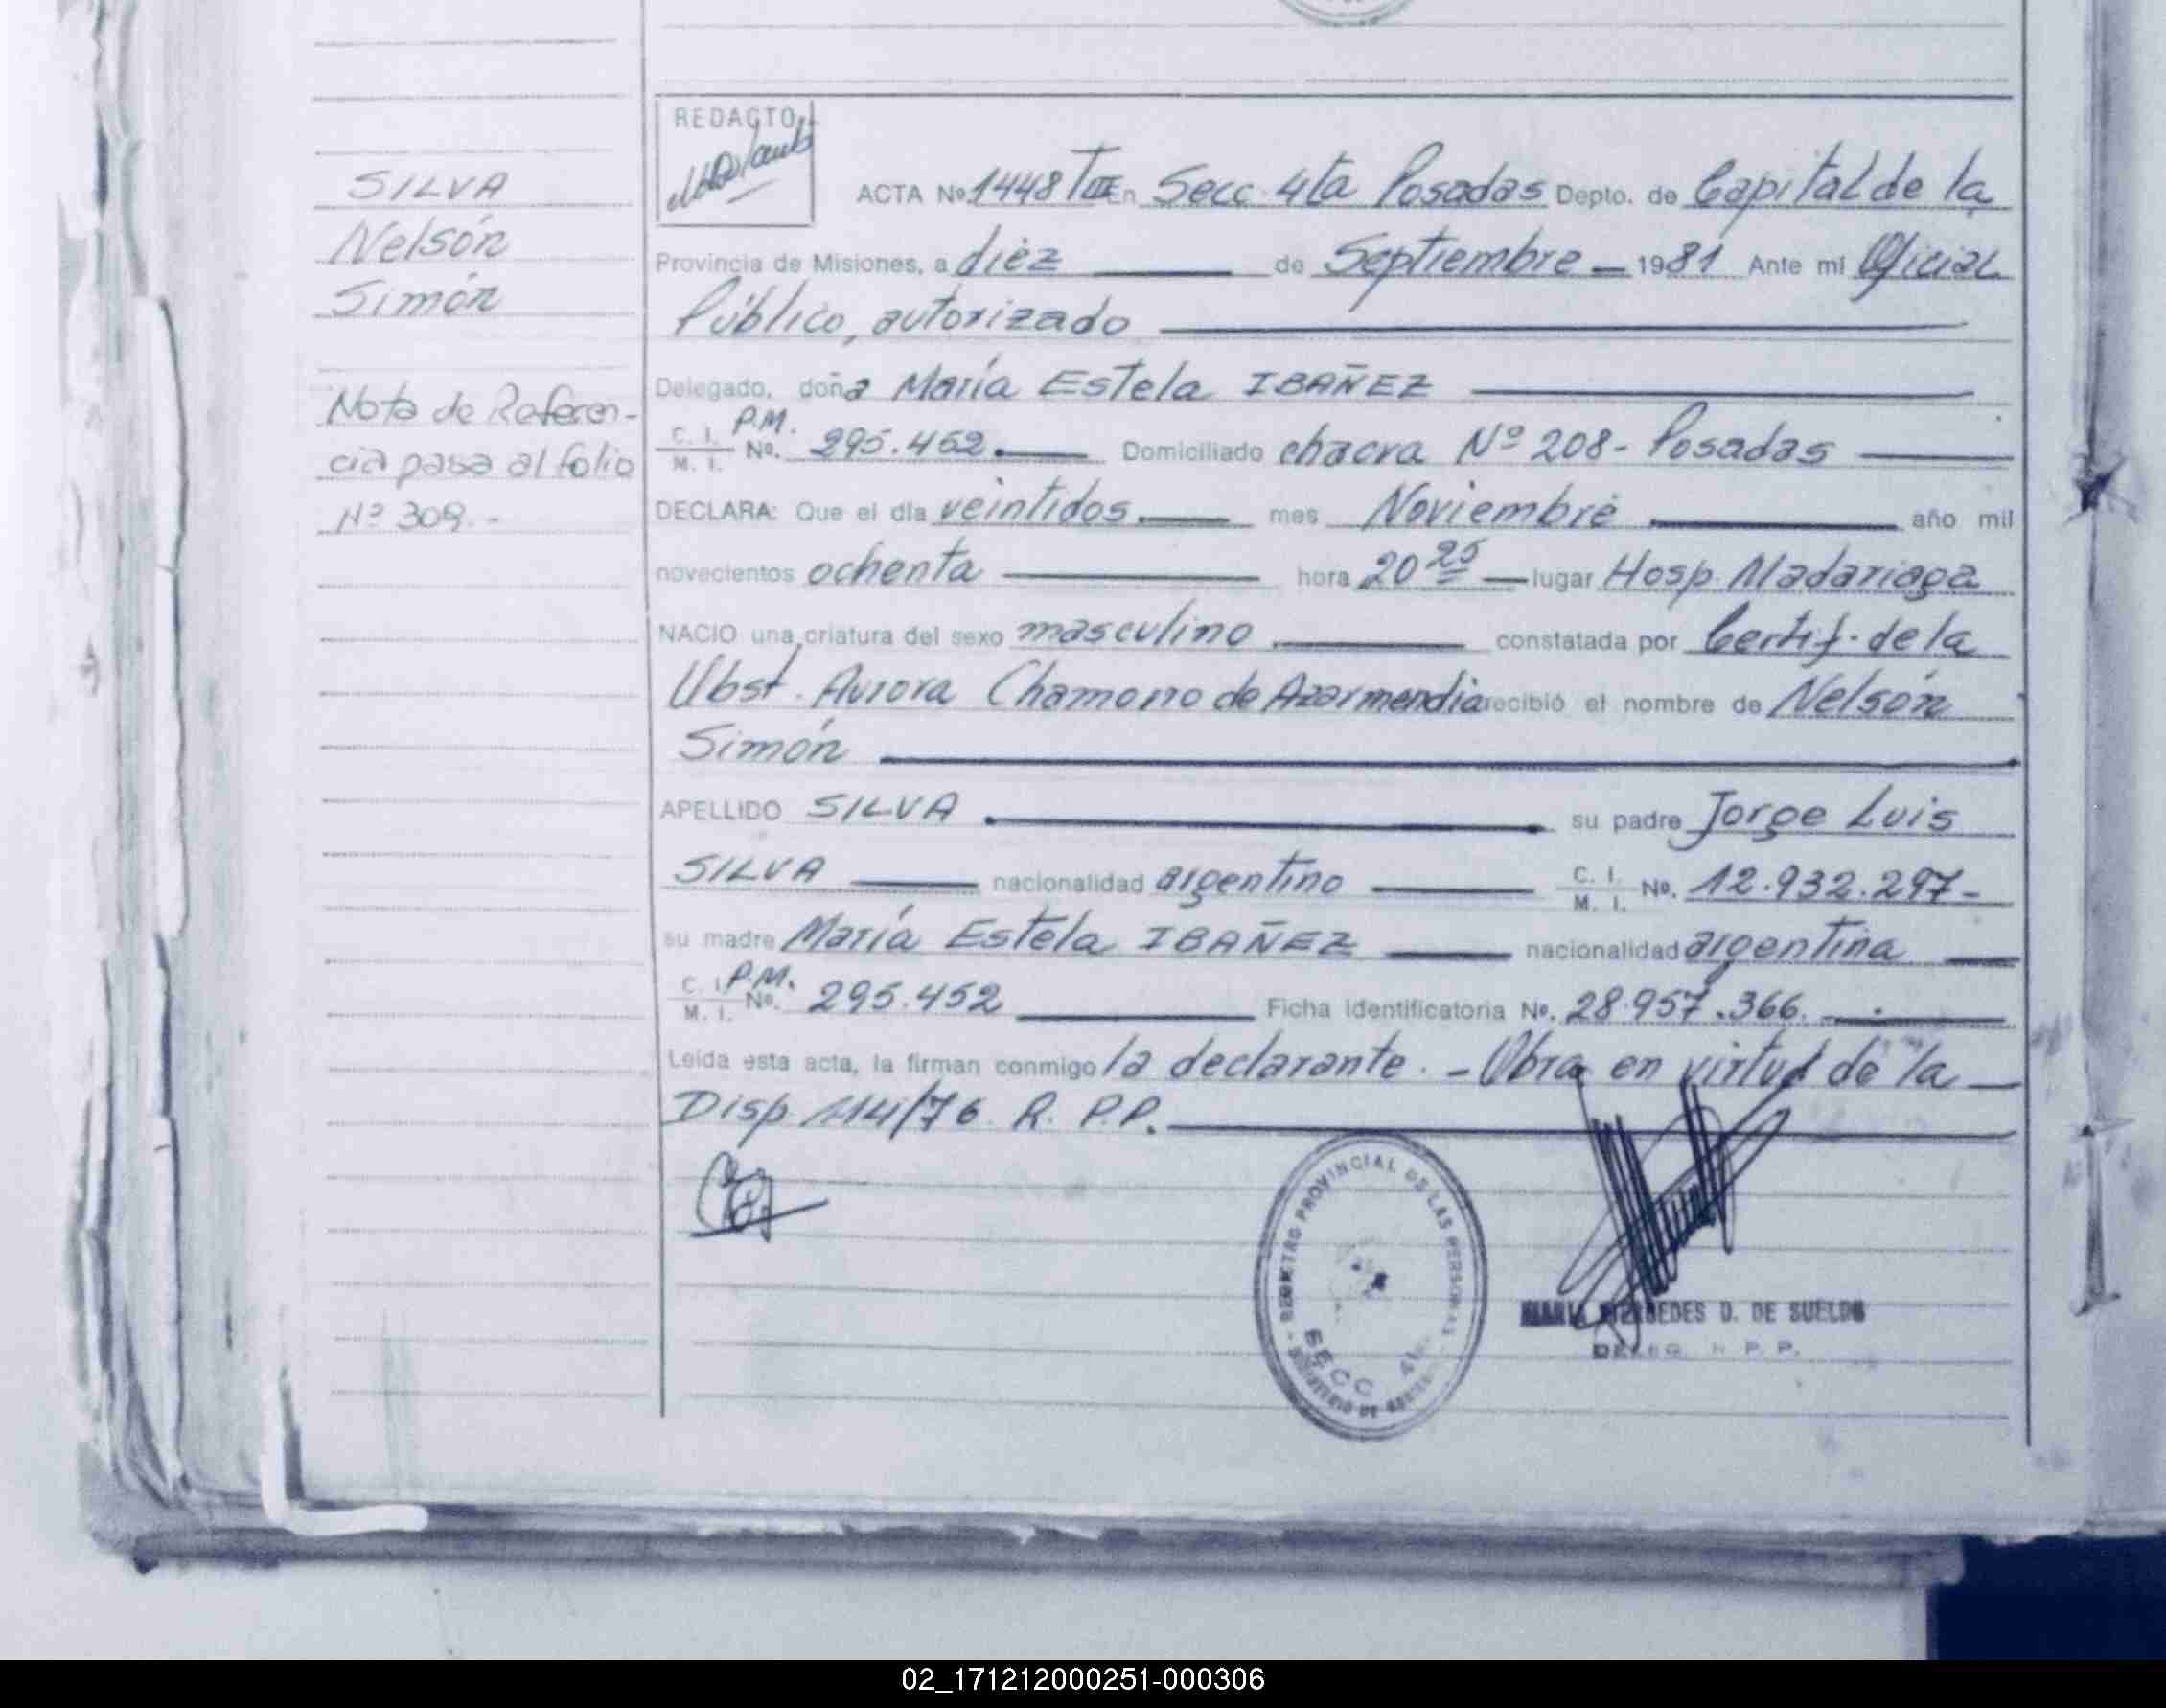 SILVA
Nelsón
Simón
Nota de Referen-
cia pasa al folio
Nº 309.-
REDACTO
ACTA Nº 1448 TIII En Secc. 4ta Posadas Depto. de Capital de la
Provincia de Misiones, a diez de Septiembre 1981 Ante mi Oficial
Público, autorizado
Delegado, doña María Estela IBAÑEZ
C. I. M. I. P.M. No. 295.452. Domiciliado chacra Nº 208- Posadas
DECLARA: Que el día veintidos. mes Noviembre año mil
novecientos ochenta hora 20 25 lugar Hosp. Madariaga
NACIO una criatura del sexo masculino constatada por Certif. de la
Obst. Aurora Chamorro de Azarmendia recibió el nombre de Nelsón
Simón
APELLIDO SILVA su padre Jorge Luis
SILVA nacionalidad argentino C. I. M. I. No. 12.932.297-
su madre María Estela IBAÑEZ nacionalidad argentina
C. I. M. I. P.M. No. 295.452 Ficha identificatoria No. 28.957.366.
Leída esta acta, la firman conmigo la declarante. - Obra en virtud de la
Disp. 114/76. R. P.P.
PROVINCIAL DE LAS PERSONAS
SECC 4
MARIA MERCEDES D. DE SUELDO
DELEG. R. P. P.
02_171212000251-000306